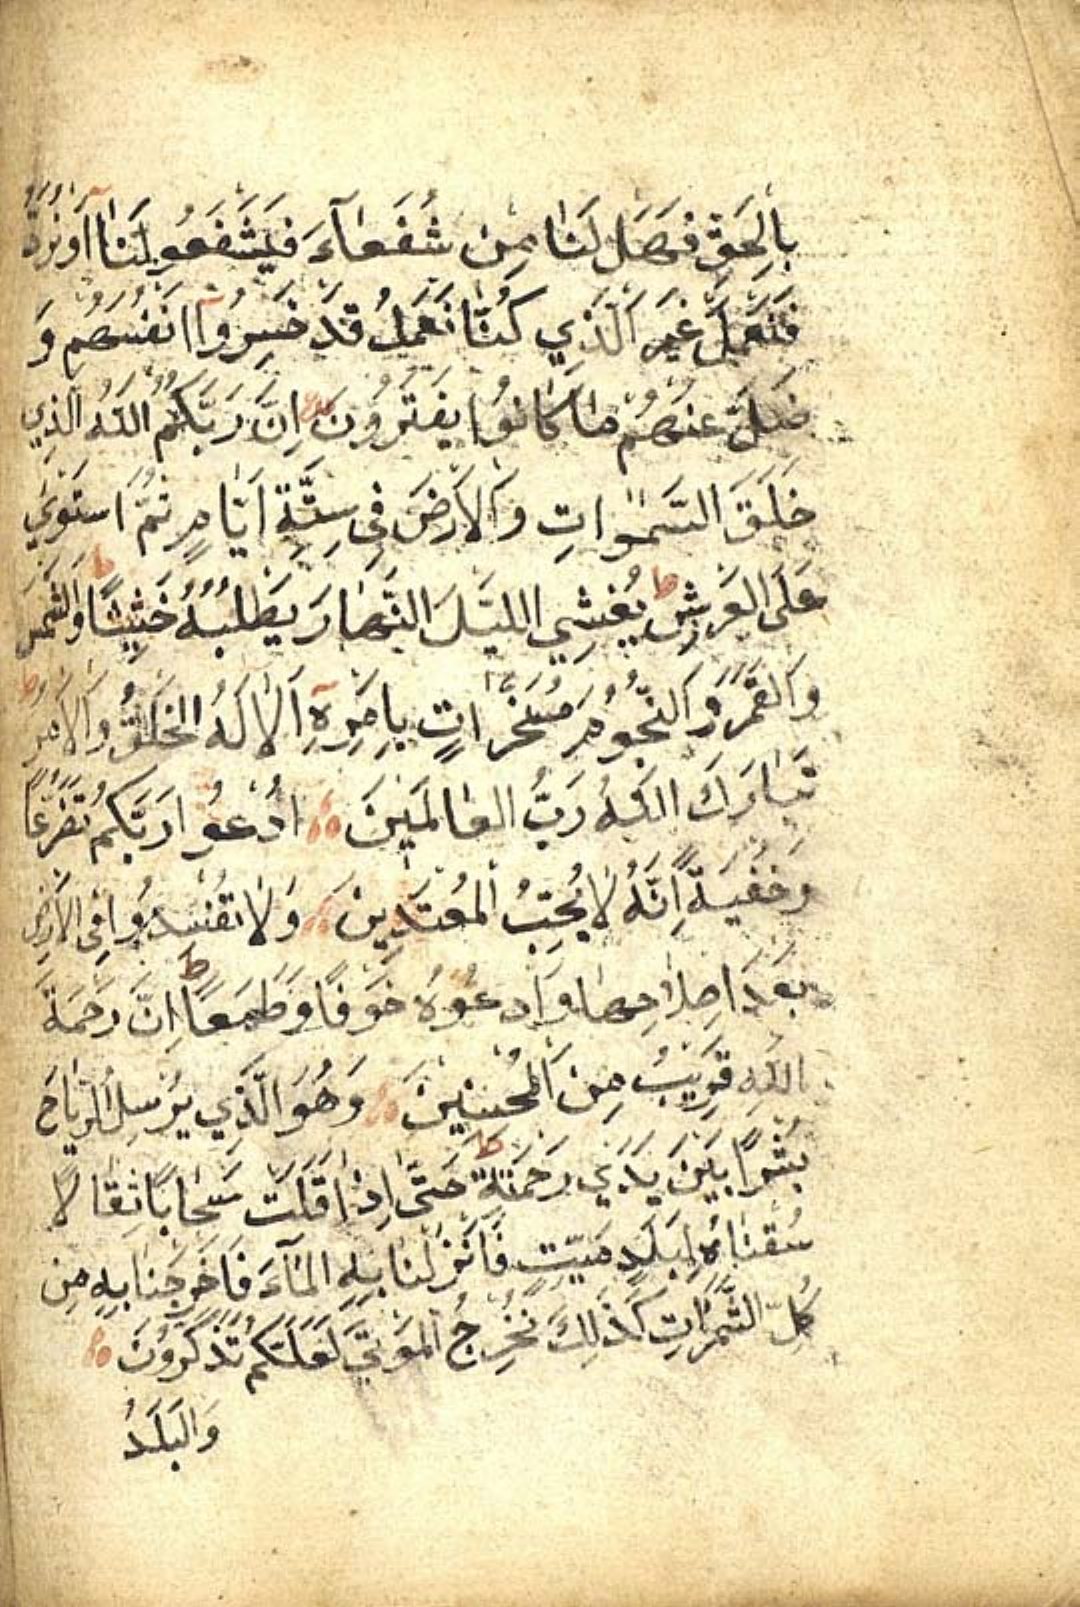 بِالْحَقِّ فَهَلْ لَنَا مِنْ شُفَعَآءَ فَيَشْفَعُو لَنَآ اَوْ نُرَدُّ
فَنَعْمَلَ غَيْرَ الَّذِي كُنَّا نَعْمَلُ قَدْ خَسِرُوآ اَنْفُسَهُمْ وَ
ضَلَّ عَنْهُمْ مَا كَانُوا يَفْتَرُونَ اِنَّ رَبَّكُمُ اللّٰهُ الَّذِي
خَلَقَ السَّمٰوَاتِ وَالْاَرْضَ فِي سِتَّةِ اَيَّامٍ ثُمَّ اسْتَوٰي
عَلَى الْعَرْشِ ط يُغْشِي اللَّيْلَ النَّهَارَ يَطْلُبُهُ حَثِيثًا ط وَالشَّمْسَ
وَالْقَمَرَ وَالنُّجُومَ مُسَخَّرَاتٍ بِاَمْرِهِٓ اَلَا لَهُ الْخَلْقُ وَالْاَمْرُ ط
تَبَارَكَ اللّٰهُ رَبُّ الْعَالَمِينَ اُدْعُوا رَبَّكُمْ تَضَرُّعًا
وَخُفْيَةً اِنَّهُ لَا يُحِبُّ الْمُعْتَدِينَ وَلَا تُفْسِدُوا فِي الْاَرْضِ
بَعْدَ اِصْلَاحِهَا وَادْعُوهُ خَوْفًا وَطَمَعًا ط اِنَّ رَحْمَةَ
اللّٰهِ قَرِيبٌ مِنَ الْمُحْسِنِينَ وَهُوَ الَّذِي يُرْسِلُ الرِّيَاحَ
بُشْرًا بَيْنَ يَدَيْ رَحْمَتِهِ ط حَتّٰى اِذَا اَقَلَّتْ سَحَابًا ثِقَالًا
سُقْنَاهُ لِبَلَدٍ مَيِّتٍ فَاَنْزَلْنَا بِهِ الْمَآءَ فَاَخْرَجْنَا بِهِ مِنْ
كُلِّ الثَّمَرَاتِ كَذٰلِكَ نُخْرِجُ الْمَوْتٰي لَعَلَّكُمْ تَذَكَّرُونَ
وَالْبَلَدُ